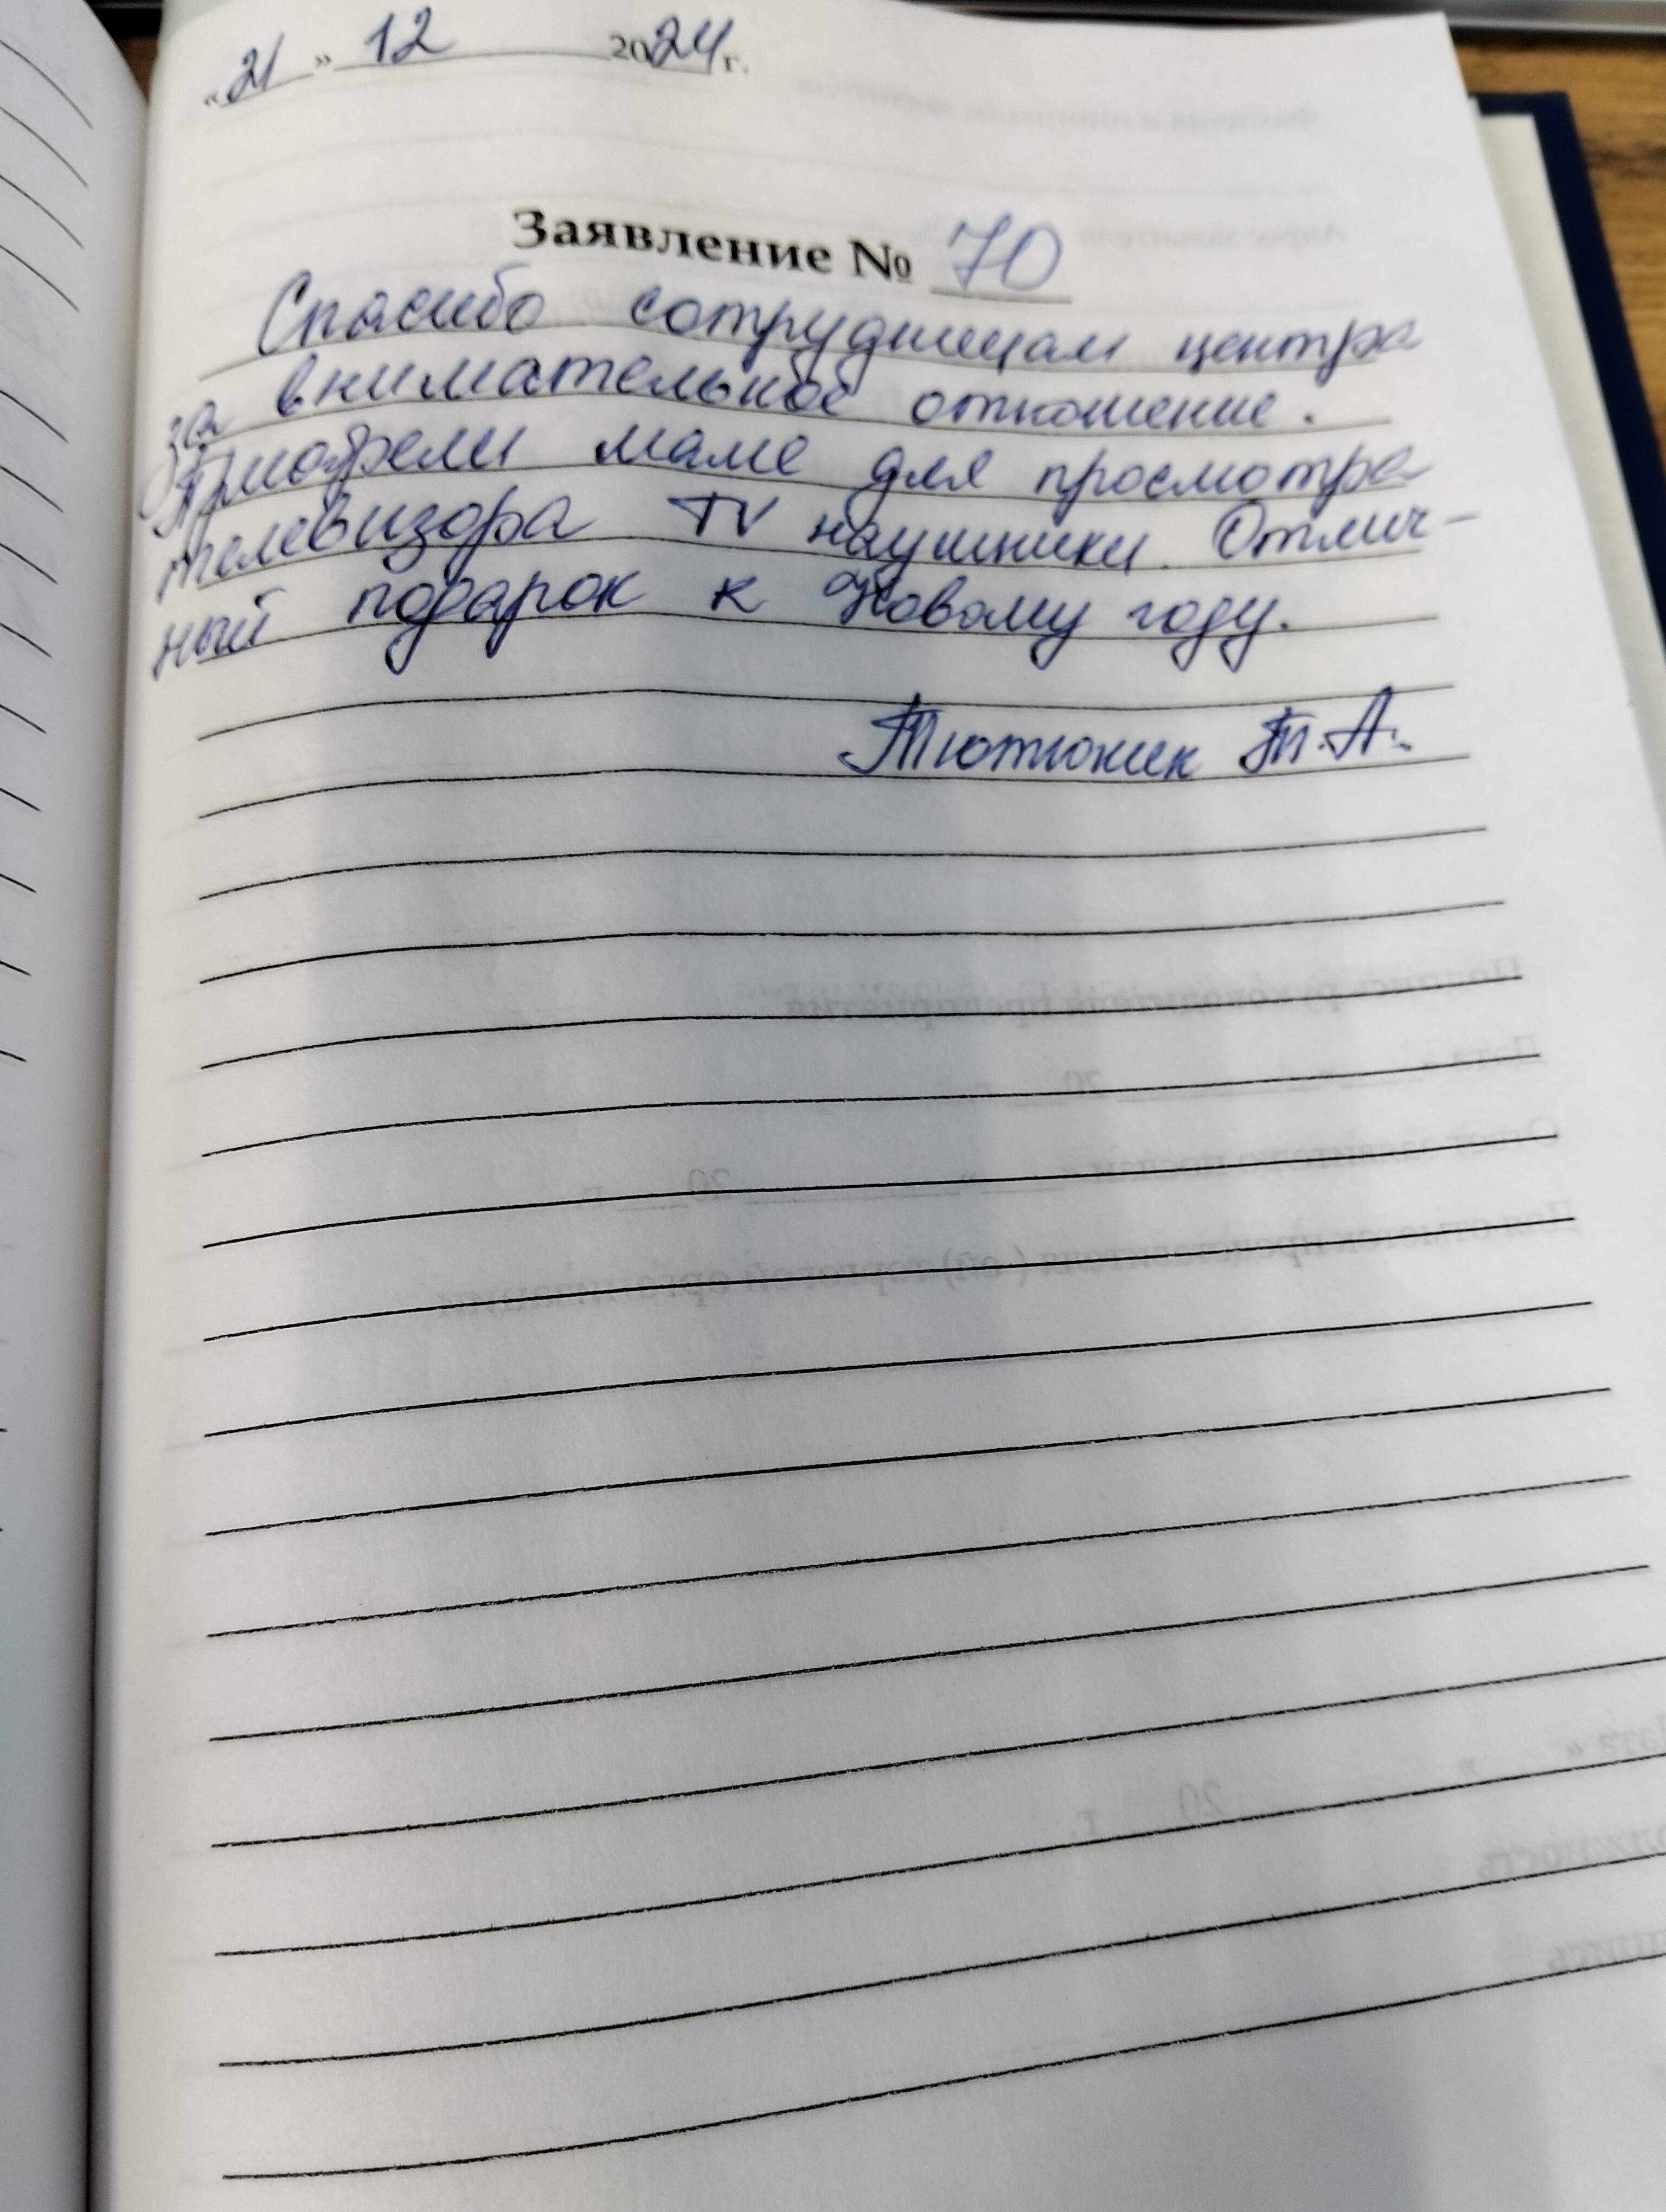 «21» 12 2024 г.
Заявление № 70
Спасибо сотрудницам центра
за внимательное отношение.
маме для просмотра
телевизора TV наушники. Отлич-
ный подарок к Новому году.
Тютюник Т.А.